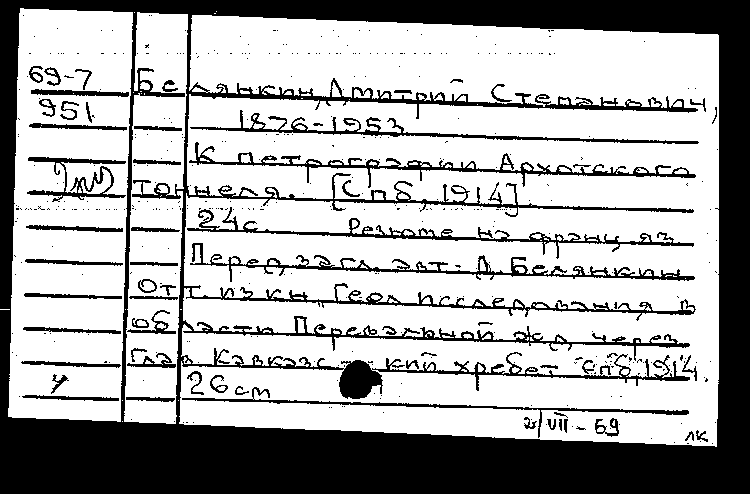 69-7 Белянкин, Дмитрий Степанович,
951 1876-1953
К петрографии Архотского
тоннеля. [Спб, 1914]
24с. Резюме на франц. яз.
Перед загл. авт.: Д. Белянкин
Отт. из кн. Геол исследования в
области Перевальной жд через
Глав Кавказский хребет Спб, 1914.
26см
2/VII - 69
ЛК